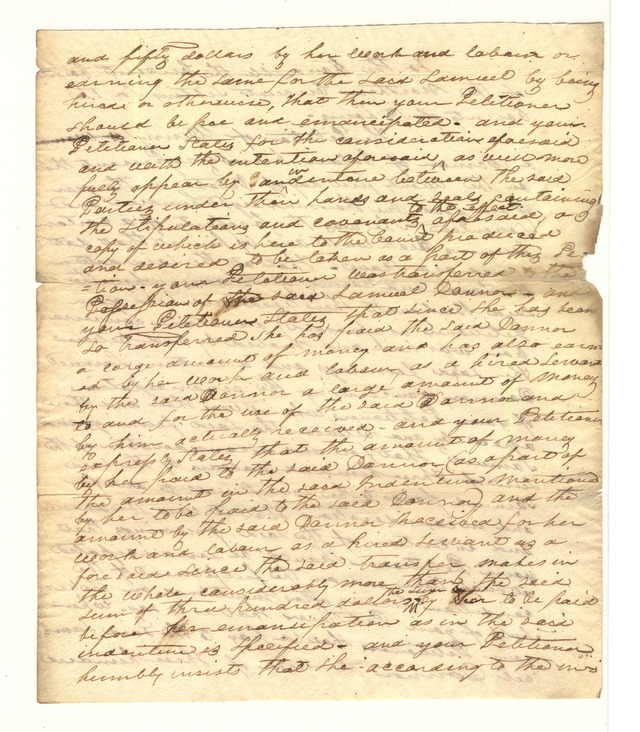 and fifty dollars by her work and labour or
earning the same for the said Samuel by being
hired or otherwise, that then your Petitioner
should be free and emancipated - and your
Petitioner States for the consideration aforesaid
and with the intention aforesaid, as will more
fully appear by an indenture between the said
Parties under their hands and seals containing
the Stipulations and covenants to the effect aforesaid, a
copy of which is here to the Court produced
and desired to be taken as a part of this Pe
=tion - your Petitioner was transferred the
Possession of the said Samuel Dannor - and
your Petitioner States that since she has been
so transferred she has paid the said Dannor
a large amount of money and has also earn
ed by her work and labour as a hired Servant
by the said Dannor a large amount of money
to and for the use of the said Dannor and
by him actually received - and your Petitioner
expressly States that the amount of money
by her paid to the said Dannor (as a part of
the amount in the said Indenture mentioned
by her to be paid to the said Dannor) and the
amount by the said Dannor received for her
work and labour as a hired servant as a
foresaid since the said transfer, makes in
the whole considerably more than the said
sum of three hundred dollars by her to be paid
before her emancipation as in the said
indenture is specified - and your Petitioner
humbly insists that she according to the in